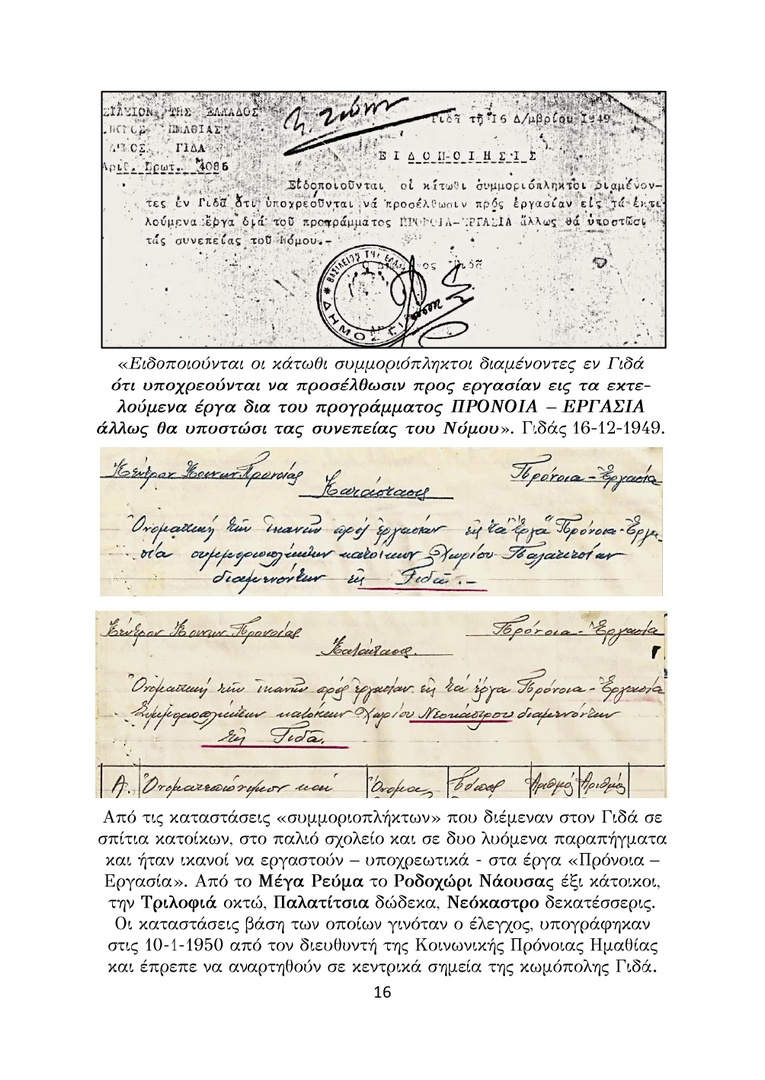 ΒΑΣΙΛΕΙΟΝ ΤΗΣ ΕΛΛΑΔΟΣ
ΝΟΜΟΣ ΗΜΑΘΙΑΣ
ΔΗΜΟΣ ΓΙΔΑ
Αριθ. Πρωτ. 4086
Γιδᾶ τῇ 16 Δ/μβρίου 1949
ΕΙΔΟΠΟΙΗΣΙΣ
Εἰδοποιοῦνται οἱ κάτωθι συμμοριόπληκτοι διαμένον-
τες ἐν Γιδᾶ ὅτι ὑποχρεοῦνται νά προσέλθωσιν πρός ἐργασίαν εἰς τά ἐκτε-
λούμενα ἔργα διά τοῦ προγράμματος ΠΡΟΝΟΙΑ-ΕΡΓΑΣΙΑ ἄλλως θά ὑποστῶσι
τάς συνεπείας τοῦ Νόμου.-
«Ειδοποιούνται οι κάτωθι συμμοριόπληκτοι διαμένοντες εν Γιδά
ότι υποχρεούνται να προσέλθωσιν προς εργασίαν εις τα εκτε-
λούμενα έργα δια του προγράμματος ΠΡΟΝΟΙΑ – ΕΡΓΑΣΙΑ
άλλως θα υποστώσι τας συνεπείας του Νόμου». Γιδάς 16-12-1949.
Κέντρον Κοινων. Προνοίας Πρόνοια - Ἐργασία
Κατάστασις
Ὀνομαστική τῶν ἱκανῶν πρός ἐργασίαν εἰς τά Ἔργα Πρόνοια-Ἐργα-
σία συμμοριοπλήκτων κατοίκων Χωρίου Παλατιτσίων
διαμενόντων εἰς Γιδᾶ.-
Κέντρον Κοινων. Προνοίας Πρόνοια - Ἐργασία
Κατάστασις
Ὀνομαστική τῶν ἱκανῶν πρός ἐργασίαν εἰς τά ἔργα Πρόνοια - Ἐργασία
Συμμοριοπλήκτων κατοίκων Χωρίου Νεοκάστρου διαμενόντων
εἰς Γιδᾶ.
Α. Ὀνοματεπώνυμον καί Ὄνομα Τόπος Ἀριθμός Ἀριθμός
Από τις καταστάσεις «συμμοριοπλήκτων» που διέμεναν στον Γιδά σε
σπίτια κατοίκων, στο παλιό σχολείο και σε δυο λυόμενα παραπήγματα
και ήταν ικανοί να εργαστούν – υποχρεωτικά - στα έργα «Πρόνοια –
Εργασία». Από το Μέγα Ρεύμα το Ροδοχώρι Νάουσας έξι κάτοικοι,
την Τριλοφιά οκτώ, Παλατίτσια δώδεκα, Νεόκαστρο δεκατέσσερις.
Οι καταστάσεις βάση των οποίων γινόταν ο έλεγχος, υπογράφηκαν
στις 10-1-1950 από τον διευθυντή της Κοινωνικής Πρόνοιας Ημαθίας
και έπρεπε να αναρτηθούν σε κεντρικά σημεία της κωμόπολης Γιδά.
16